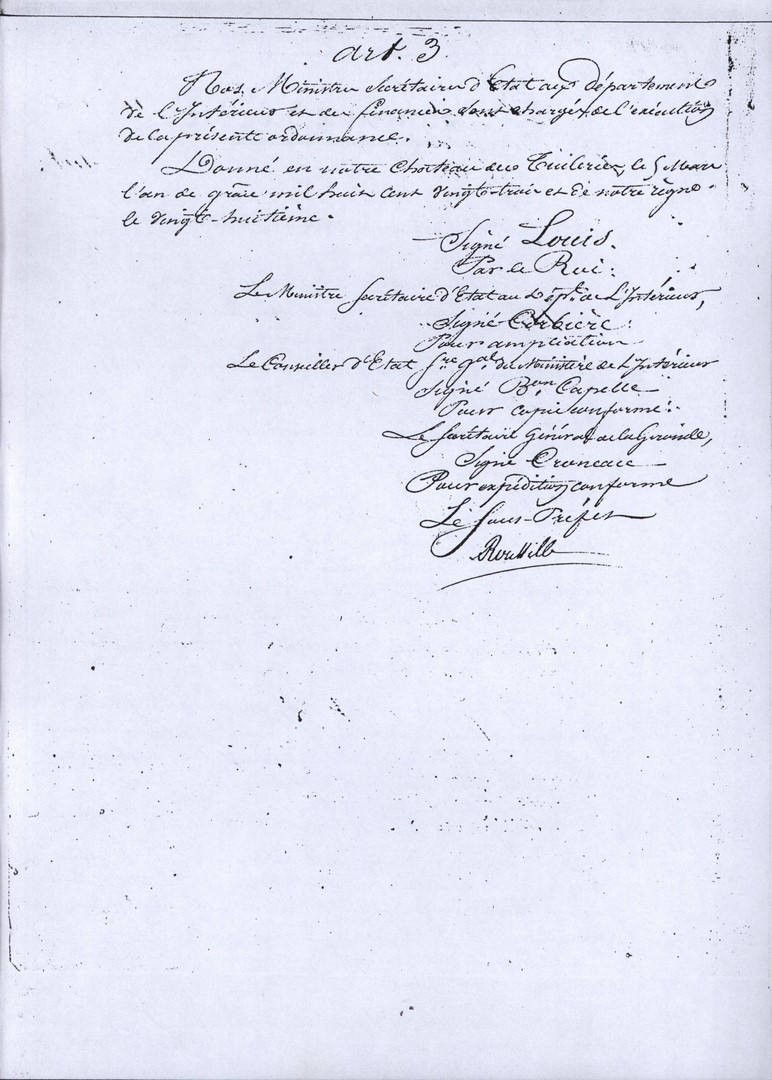 art. 3
Nos Ministre Secrétaire d'Etat aux départements
de l'Intérieur et des finances sont chargés de l'exécution
de la présente ordonnance.
Donné en notre Chateau des Tuileries, le 5 Mars
l'an de grâce mil huit cent vingt-trois et de notre règne
le vingt-huitième.
Signé Louis.
Par le Roi:
Le Ministre Secrétaire d'Etat au Dépt. de L'Intérieur,
Signé Corbière.
Pour ampliation
Le Conseiller d'Etat Sre. Gal. du Ministère de L'Intérieur
Signé Bon. Capelle
Pour copie conforme:
Le Secrétaire Général de la Gironde,
Signé
Pour expédition conforme
Le Sous-Préfet